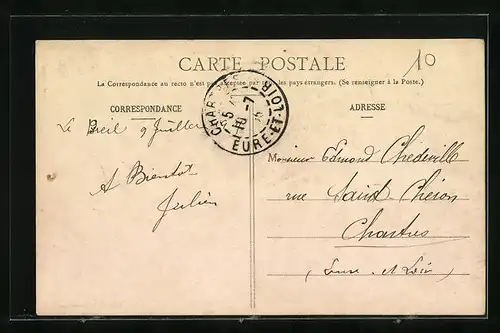 10
CARTE POSTALE
La Correspondance au recto n'est pas acceptée par tous les pays étrangers. (Se renseigner à la Poste.)
CORRESPONDANCE
ADRESSE
CHARTRES
10-7
EURE-ET-LOIR
Le Breil 9 Juillet
A Bientôt
Julien
Monsieur Edmond Chédeville
rue Saint Chéron
Chartres
(Eure et Loir)